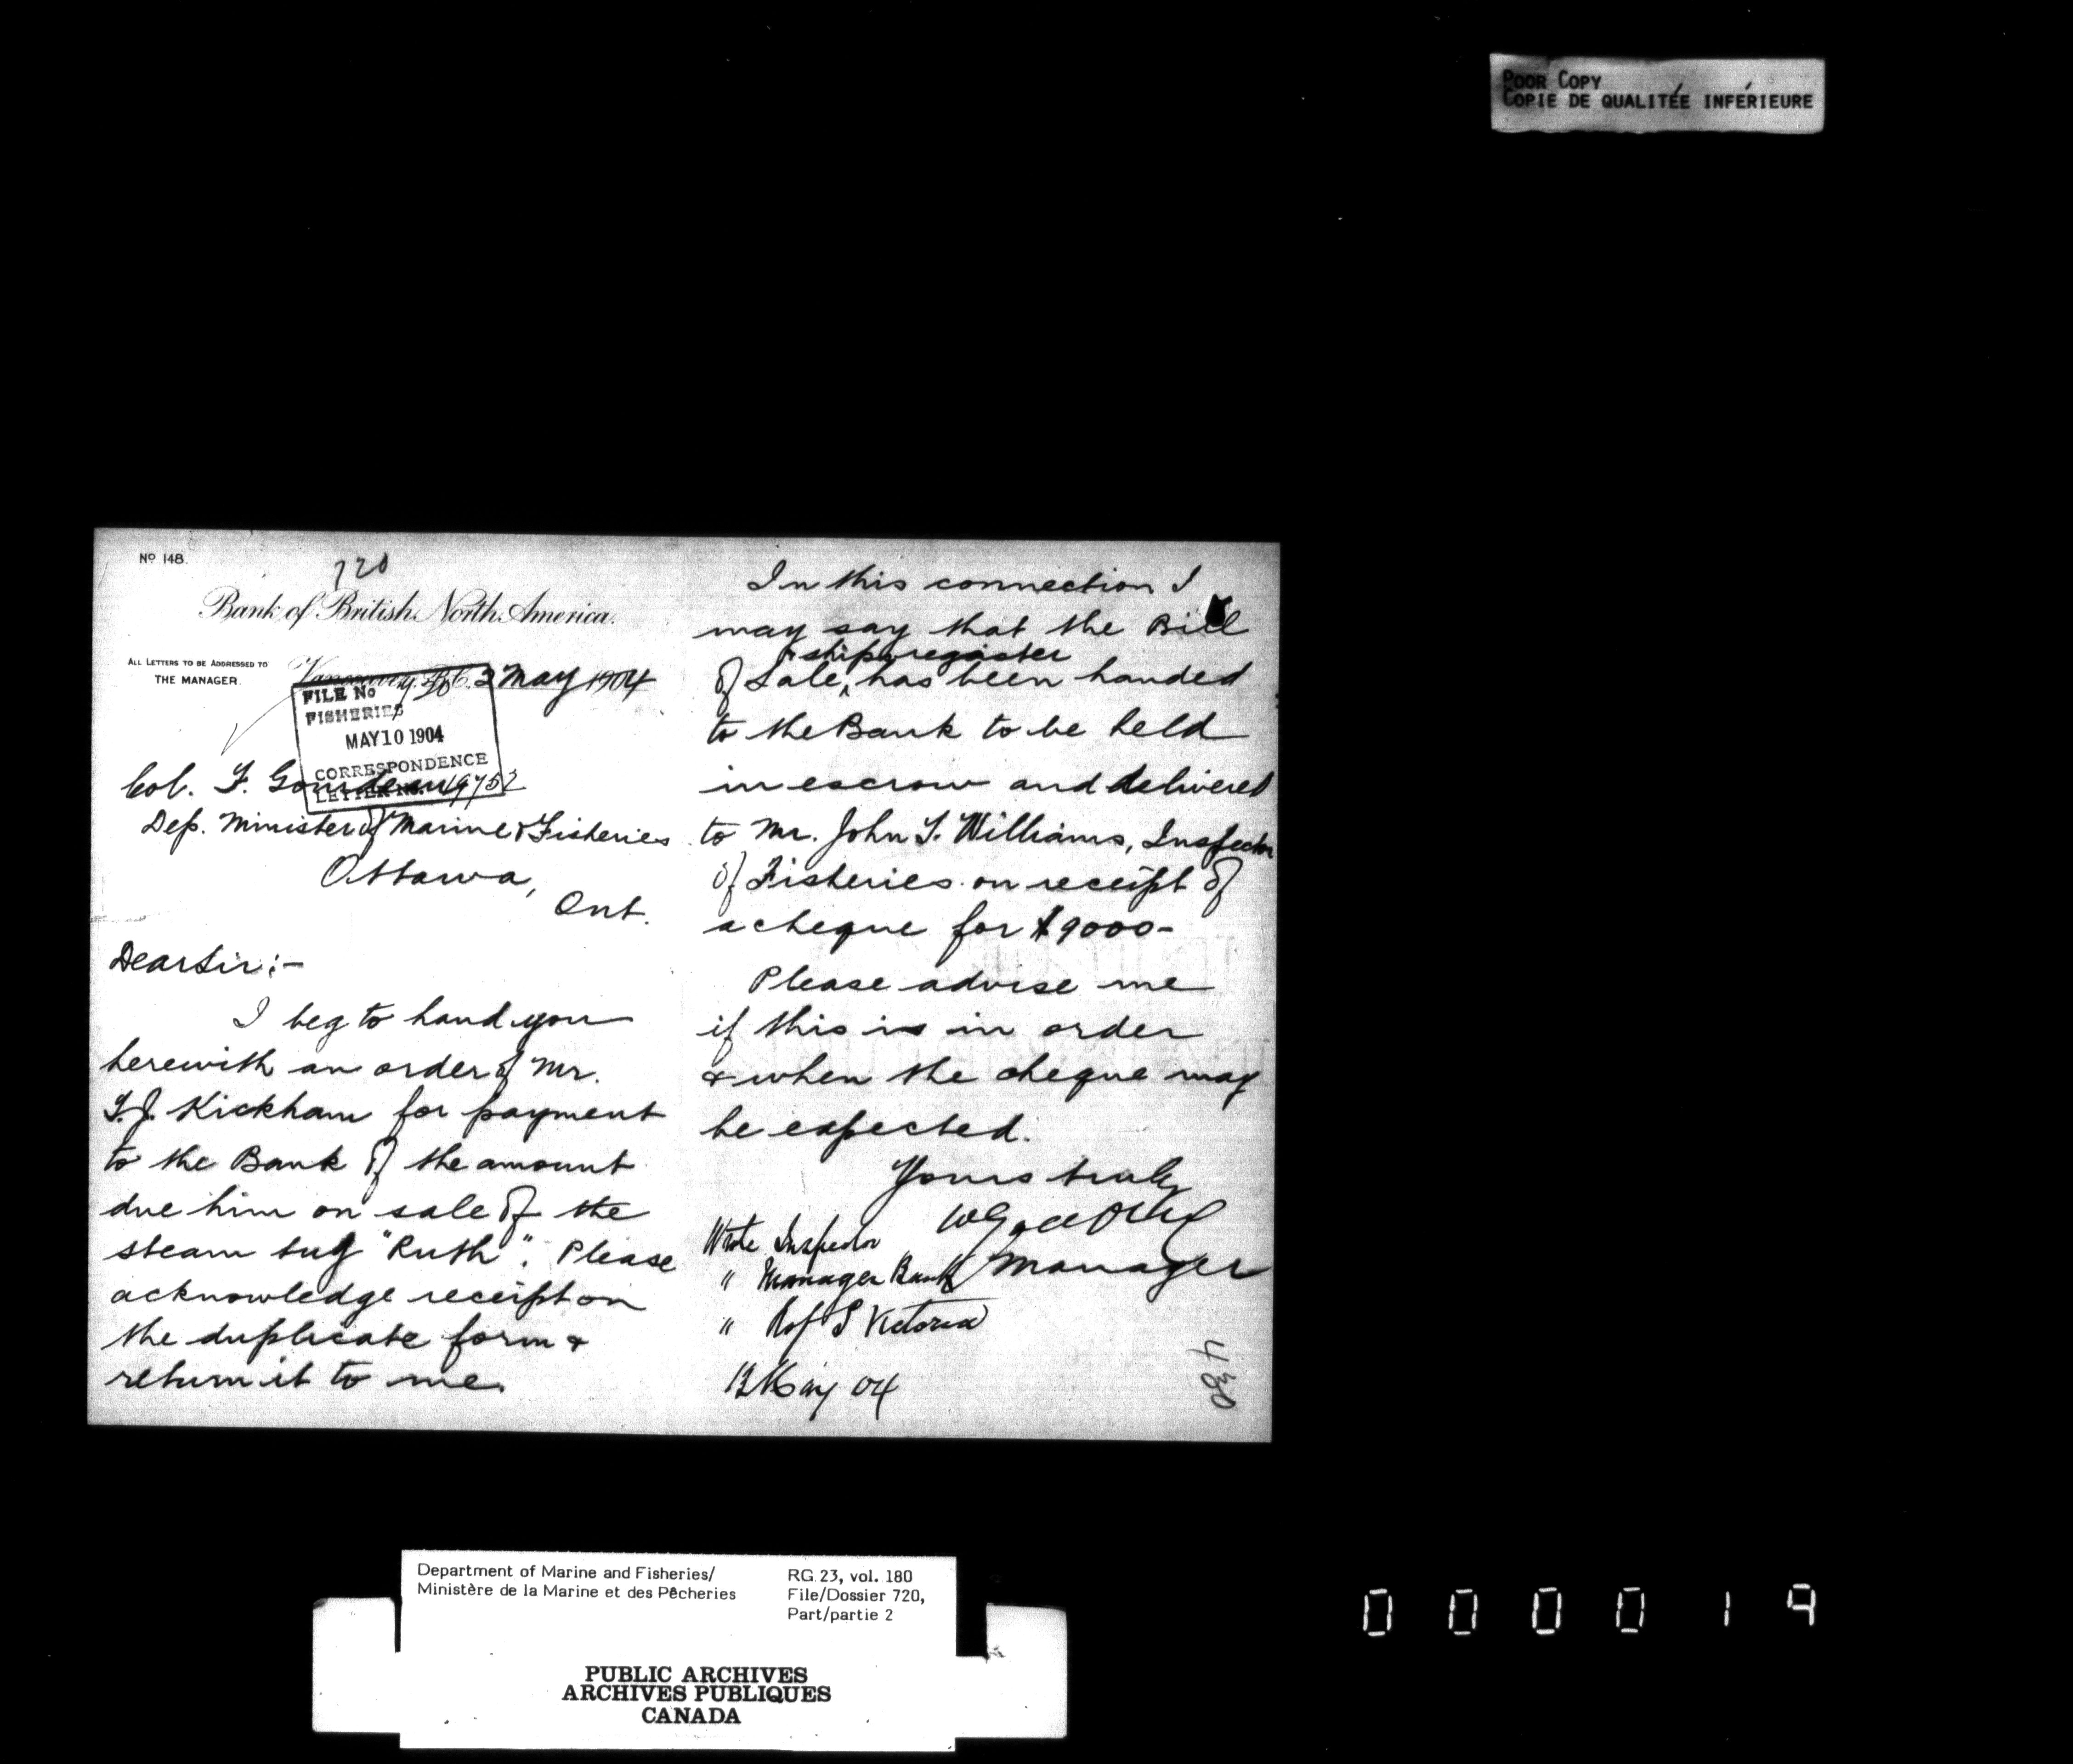 POOR COPY
COPIE DE QUALITÉE INFÉRIEURE
No 148.
720
Bank of British North America.
ALL LETTERS TO BE ADDRESSED TO
THE MANAGER.
Vancouver, B.C. 3 May 1904
FILE No
FISHERIES
MAY 10 1904
CORRESPONDENCE
LETTER No.
Col. F. Gourdeau
Dep. Minister of Marine & Fisheries
Ottawa,
Ont.
Dear Sir:-
I beg to hand you
herewith an order of Mr.
J. Kickham for payment
to the Bank of the amount
due him on sale of the
steam tug "Ruth". Please
acknowledge receipt on
the duplicate form &
return it to me.
In this connection I
may say that the Bill
& ship's register
of Sale, has been handed
to the Bank to be held
in escrow and delivered
to Mr. John T. Williams, Inspector
of Fisheries on receipt of
a cheque for $9000-
Please advise me
if this is in order
& when the cheque may
be expected.
Yours truly
Manager
Wrote Inspector
" Manager Bank
" R of S Victoria
13 May 04
430
Department of Marine and Fisheries/
Ministère de la Marine et des Pêcheries
RG 23, vol. 180
File/Dossier 720,
Part/partie 2
PUBLIC ARCHIVES
ARCHIVES PUBLIQUES
CANADA
000019